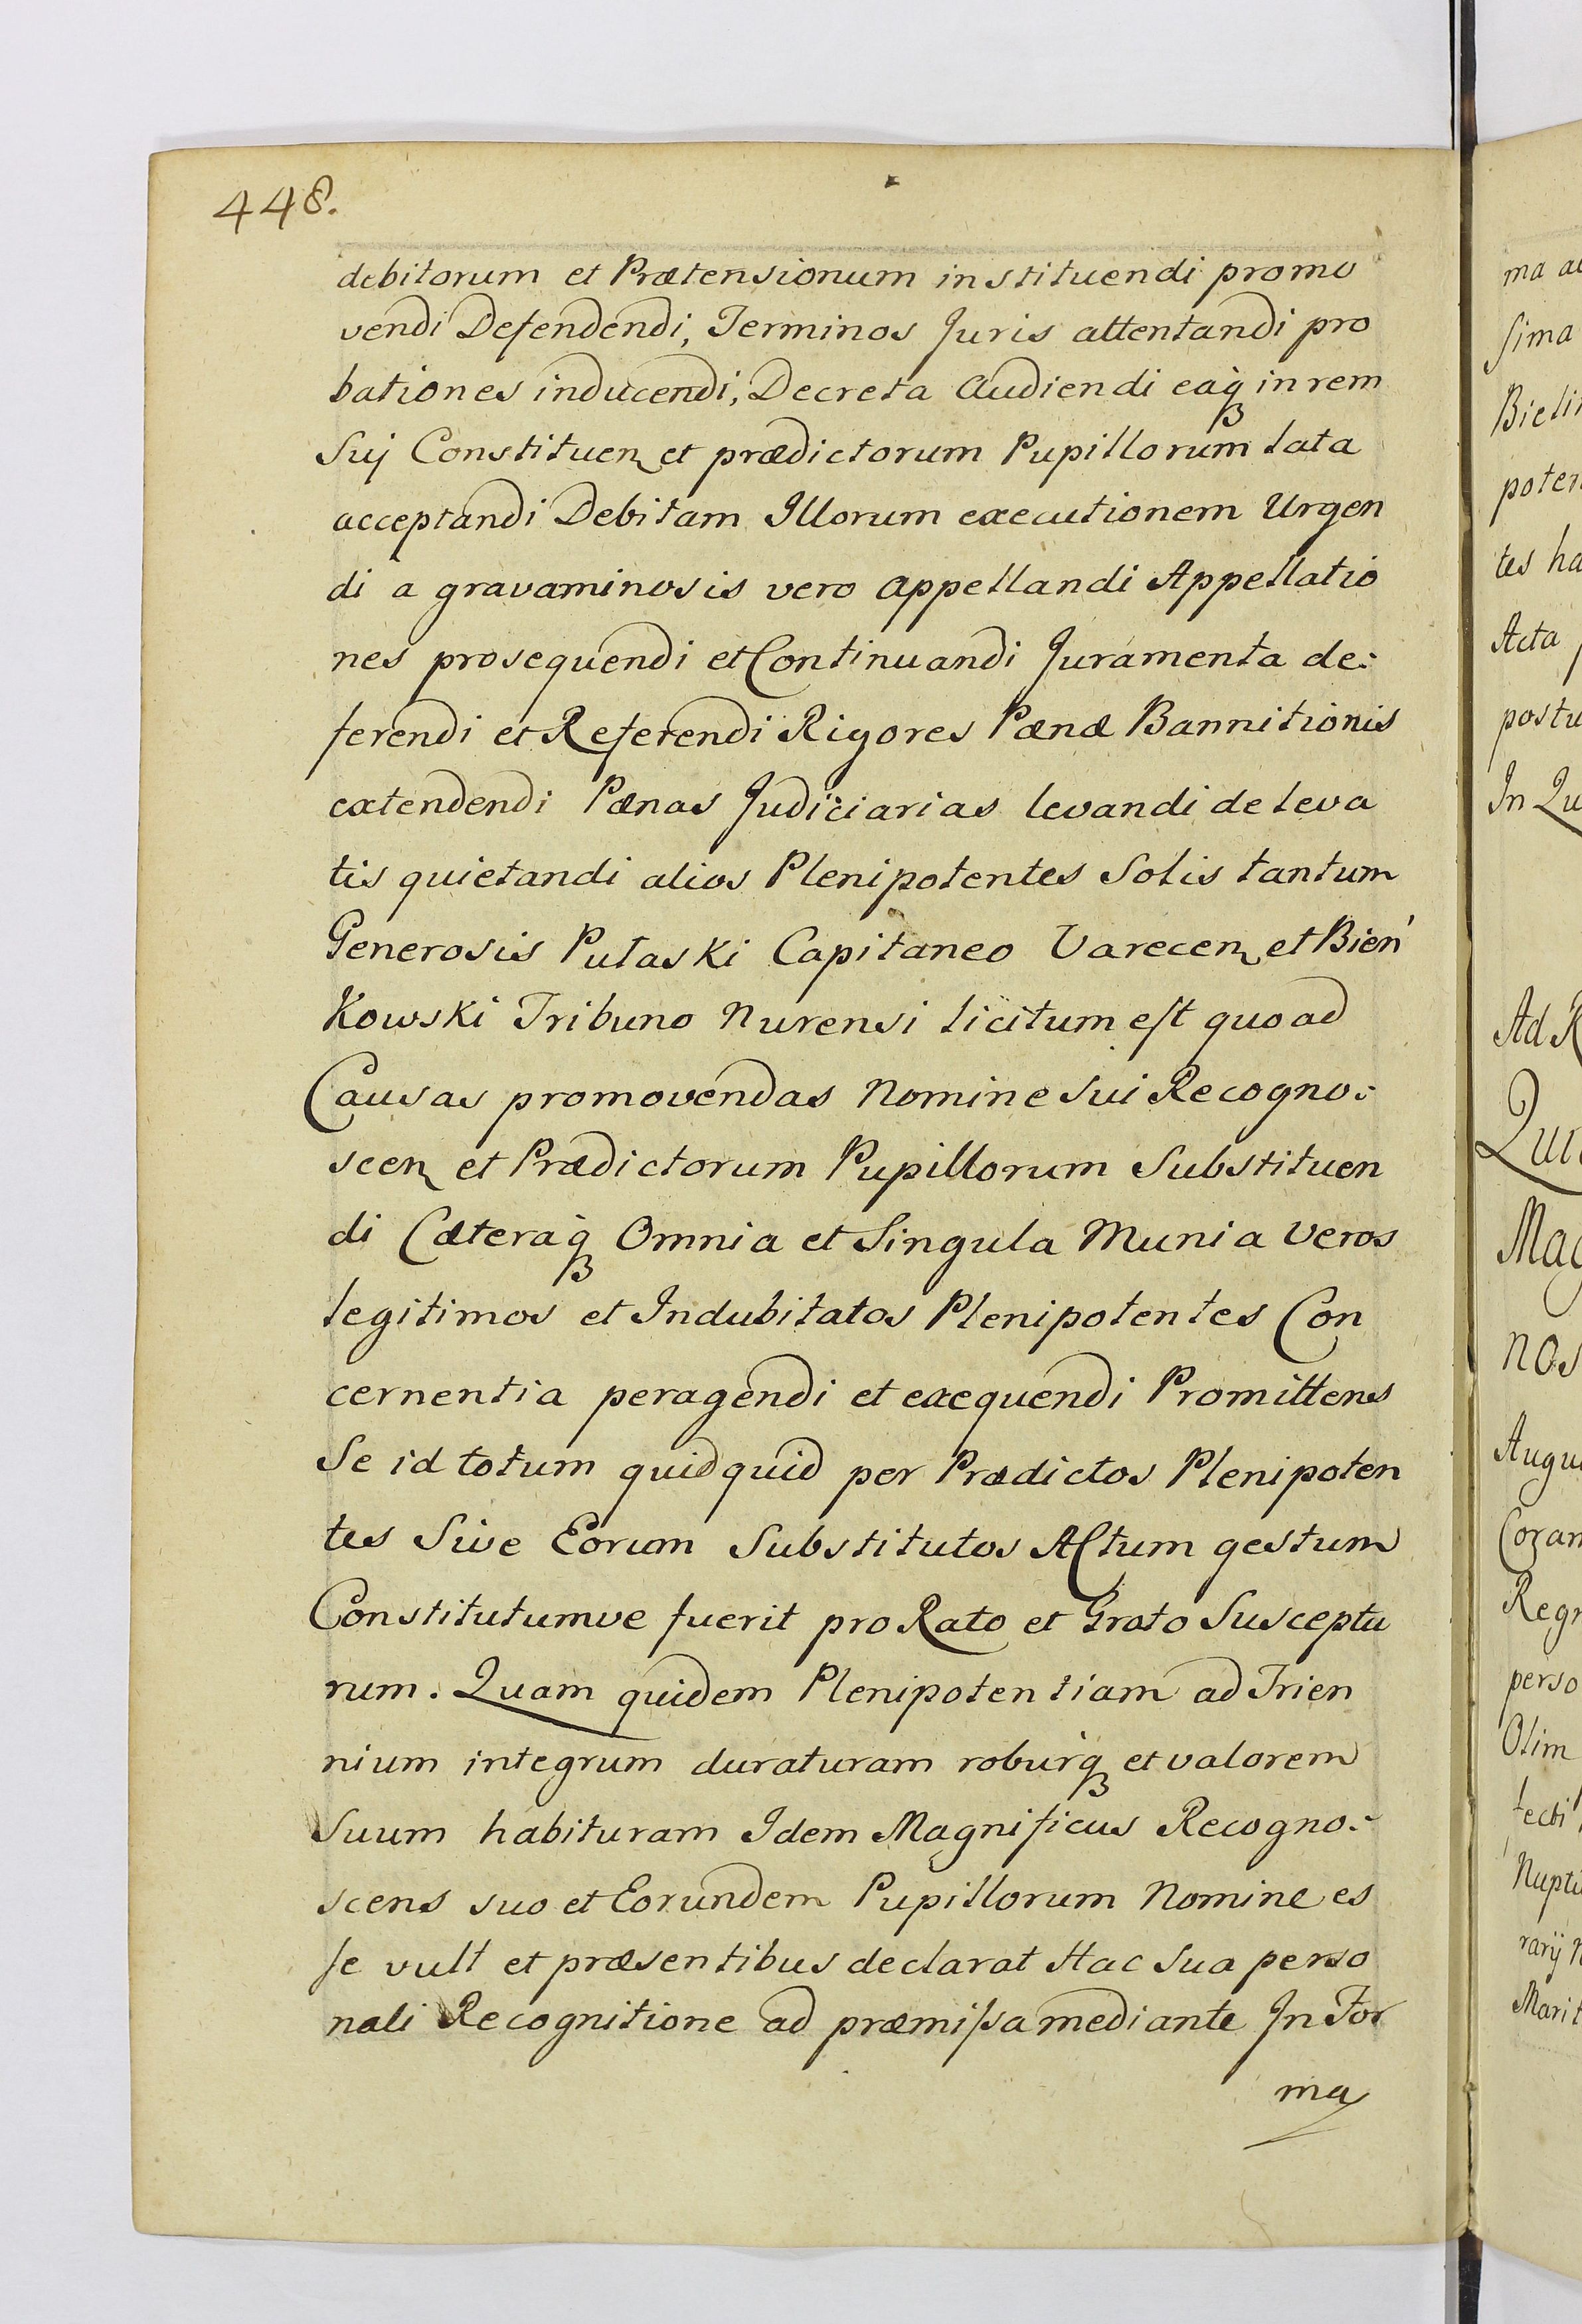 448.
debitorum et Prætensionum instituendi promo
vendi Defendendi, Terminos Juris attentandi pro
bationes inducendi, Decreta Audiendi eaqꝫ in rem
Suj Constituen et prædictorum Pupillorum lata
acceptandi Debitam Illorum executionem Urgen
di a gravaminosis vero appellandi Appellatio
nes prosequendi et Continuandi Juramenta de:
ferendi et Referendi Rigores Pænæ Bannitionis
extendendi Pænas Judiciarias levandi de leva
tis quietandi alios Plenipotentes Solis tantum
Generosis Pułaski Capitaneo Varecen et Bień
Kowski Tribuno Nurensi licitum est quoad
Causas promovendas Nomine Sui Recogno:
scen et Prædictorum Pupillorum Substituen
di Cæteraqꝫ Omnia et Singula Munia Veros
legitimos et Indubitatos Plenipotentes Con
cernentia peragendi et exequendi Promittens
Se id totum quidquid per Prædictos Plenipoten
tes Sive Eorum Substitutos Actum gestum
Constitutumve fuerit pro Rato et Grato Susceptu
rum. Quam quidem Plenipotentiam ad Trien
nium integrum duraturam roburqꝫ et valorem
Suum habituram Idem Magnificus Recogno:
scens suo et Eorundem Pupillorum Nomine es
se vult et præsentibus declarat Hac Sua perso
nali Recognitione ad præmissa mediante In For
ma
ma
sima
poten
tes ha
Acta
postu
In Qu
Ad R
Mag
nos
Augu
Coram
Regn
perso
Olim
tecti
Nupti
rarij N
Marit